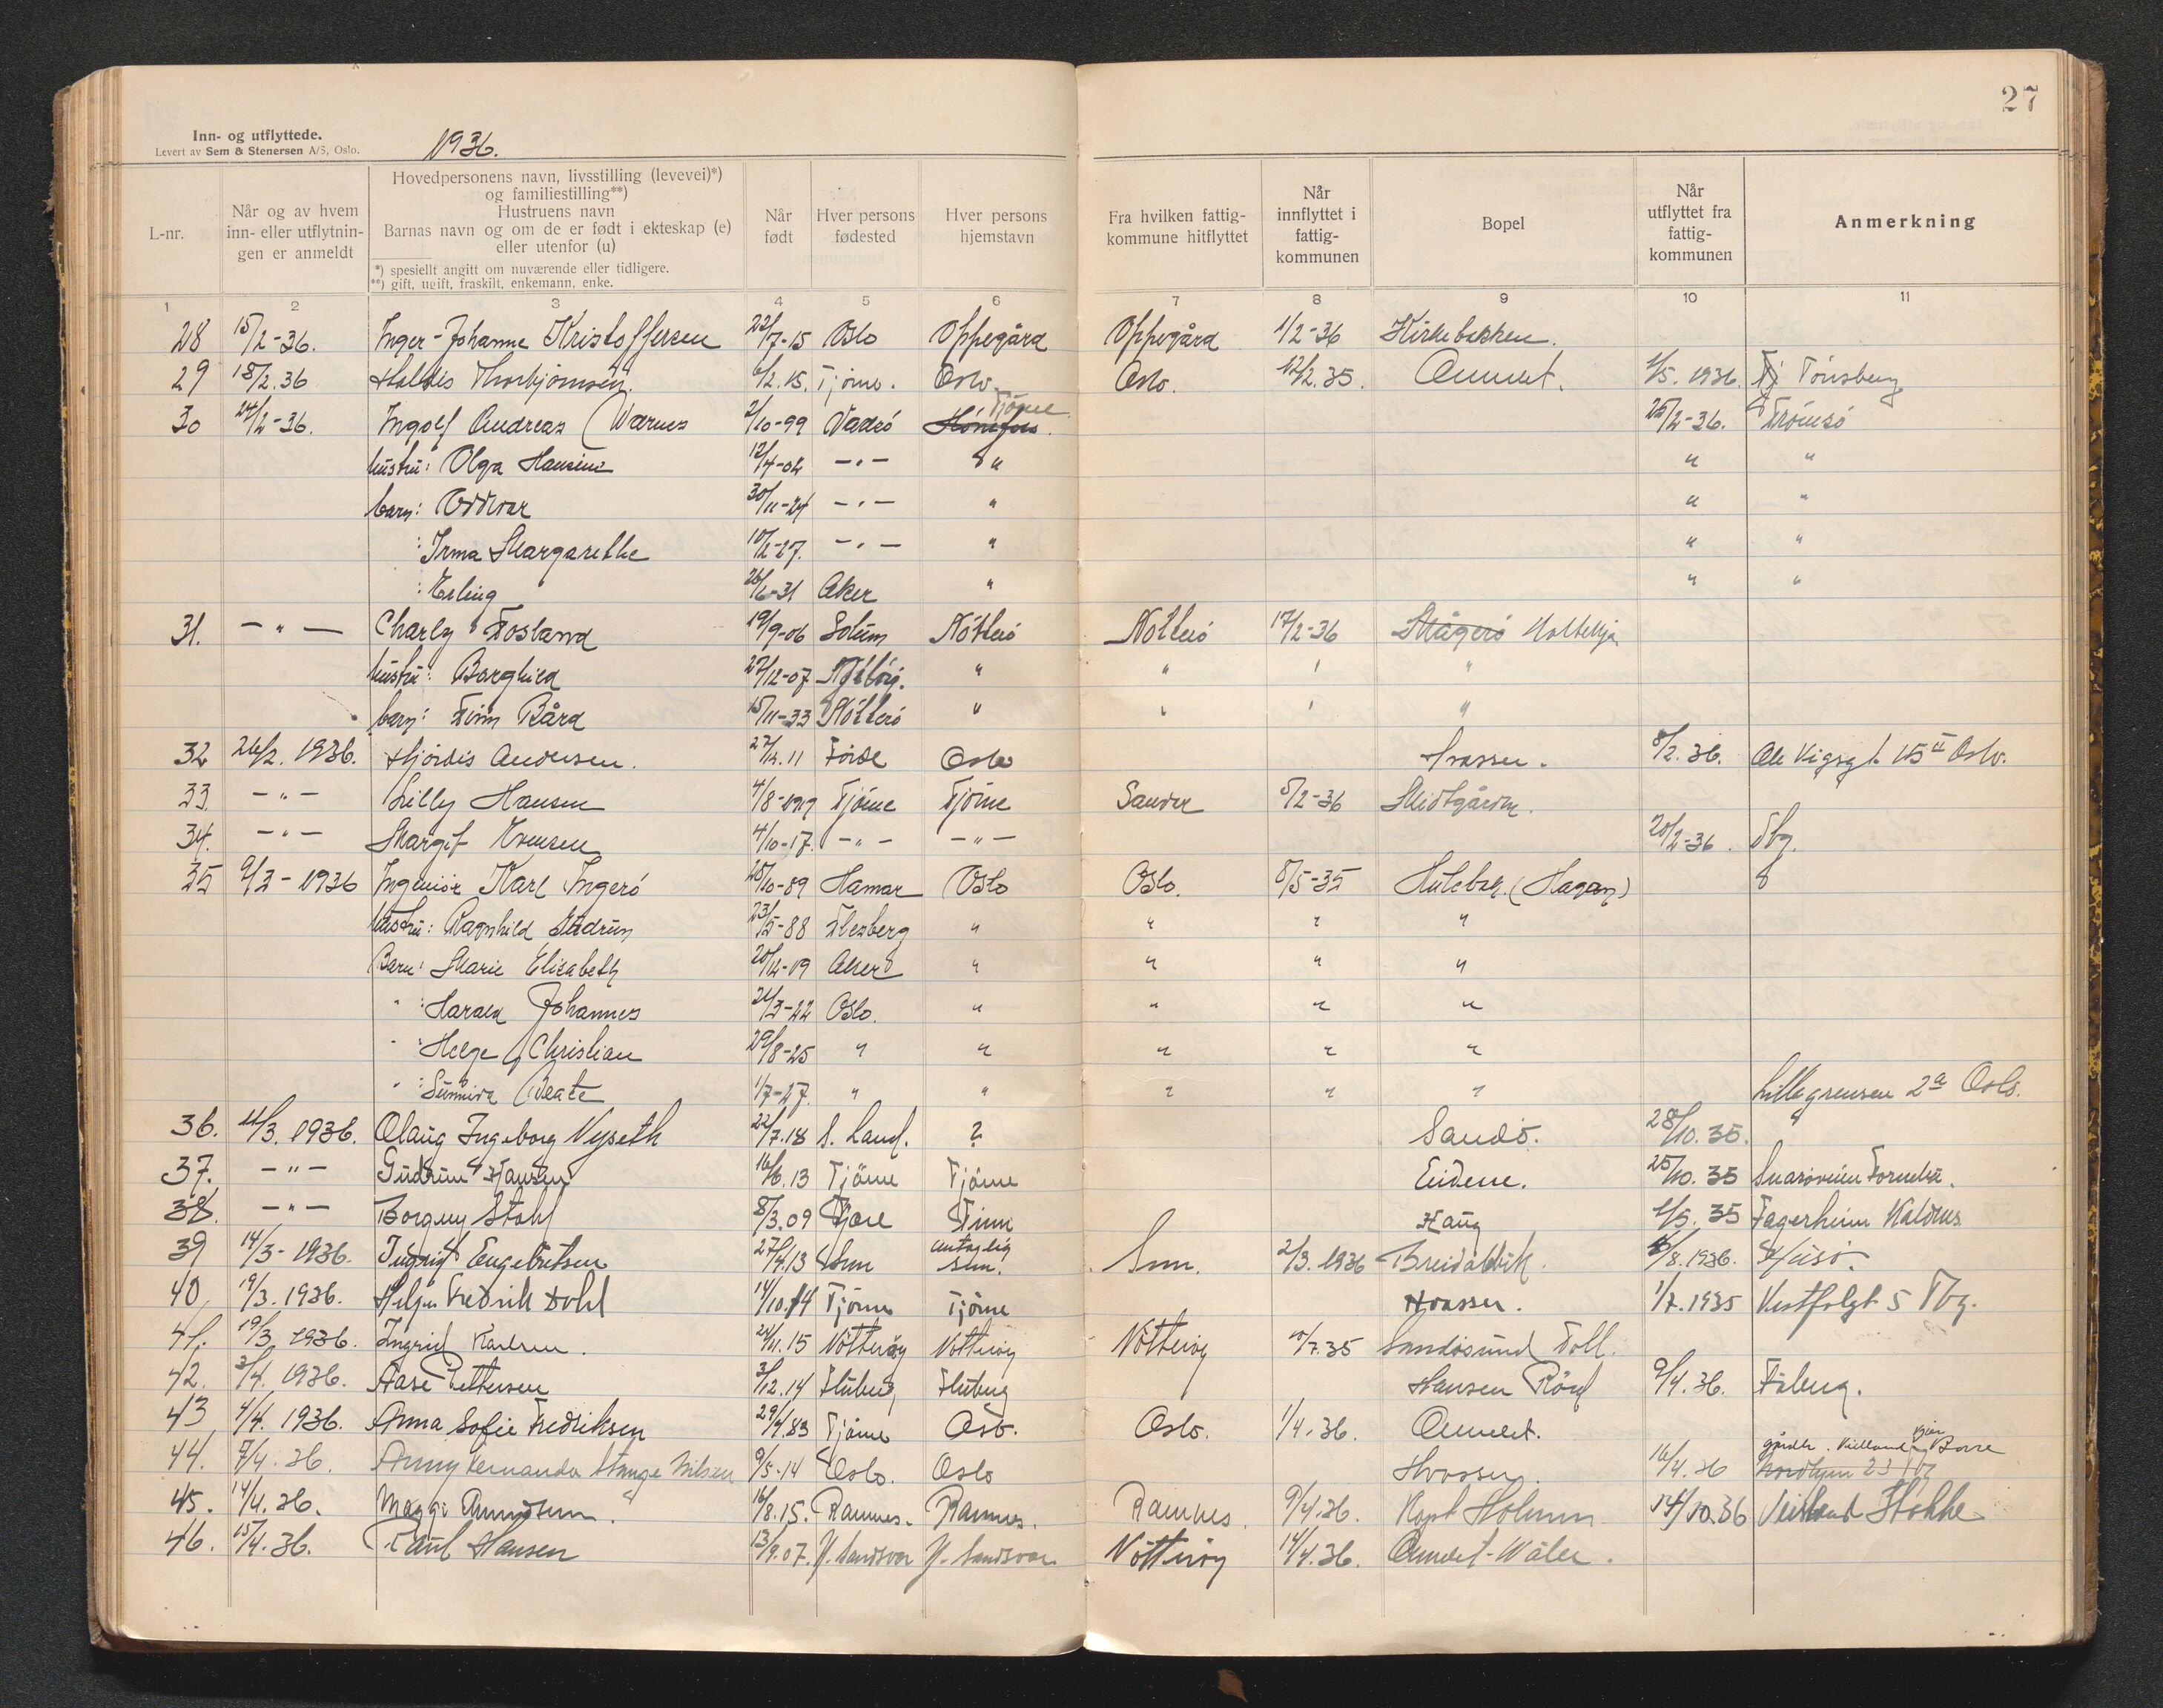 27
Inn- og utflyttede.
Levert av Sem & Stenersen A/S, Oslo.
1936.
L-nr.
Når og av hvem inn- eller utflytnin-gen er anmeldt
Hovedpersonens navn, livsstilling (levevei)*) og familiestilling**)
Hustruens navn
Barnas navn og om de er født i ekteskap (e) eller utenfor (u)
*) spesiellt angitt om nuværende eller tidligere.
**) gift, ugift, fraskilt, enkemann, enke.
Når født
Hver persons fødested
Hver persons hjemstavn
Fra hvilken fattig-kommune hitflyttet
Når innflyttet i fattig-kommunen
Bopel
Når utflyttet fra fattig-kommunen
Anmerkning
1 2 3 4 5 6 7 8 9 10 11
28 15/2-36. Inger-Johanne Kristoffersen 22/7-15 Oslo Oppegård Oppegård 1/2-36 Kirkebakken.
29 18/2.36 Haldis Thorbjørnsen. 6/2.15. Tjöme. Oslo. Oslo. 12/2.35. Ormelet. 1/5. 1936. Tj Tönsberg
30 24/2-36. Ingolf Andreas Wærnes 2/10-99 Vadsö Hönefoss. Tjöme 25/2-36. Tromsö
hustru: Olga Hansine 12/4-02 -"- " " "
barn: Oddvar 30/11-24 -"- " " "
: Irma Margarethe 10/2-27. -"- " " "
: Erling 26/6-31 Aker " " "
31. -"- Charly Fosland 19/9-06 Solum Nötterö Nötterö 17/2-36 Mågerö Holtekja
hustru: Borghild 27/12-07 " " " "
barn: Finn Bård 15/11-33 Nötterö " " " "
32 26/2. 1936. Hjördis Andersen. 27/12.11 Förde Oslo Hvasser. 8/2.36. Ole Vigsgt. 15 II Oslo.
33. -"- Lilly Hansen 4/8-1919 Tjöme Tjöme Sandar 5/2-36 Midtgården.
34. -"- Margit Evensen 4/10-17. -"- -"- 20/2-36. Tbg.
35 9/3-1936 Ingeniör Karl Ingerö 25/10-89 Hamar Oslo Oslo. 8/5-35 Hulebak. (Hagan)
hustru: Ragnhild Gudrun 23/5-88 Flesberg " " " "
Barn: Marie Elisabeth 20/12-19 Aker " " " "
" : Harald Johannes 21/3-22 Oslo. " " " "
" : Helge Christian 29/8-25 " " " " "
" : Sunniva Beate 1/7-27. " " " " " Lillegrensen 2a Oslo.
36. 11/3. 1936. Olaug Ingeborg Nyseth 22/7.18 S. Land. ? Sandö. 28/10.35. "
37. -"- Gudrun Hansen 16/6.13 Tjöme Tjöme Eidene. 25/10.35 Snaröveien Fornebu.
38. -"- Borgny Stahl 8/3.09 Tinn Haug 1/5.35 Fagerheim Valdres
39 14/3-1936. Ingrid Engebretsen 27/4.13 Sem antagelig Sem. Sem. 2/3.1936 Breidablikk. /8.1936. Husö.
40, 19/3. 1936. Helge Fredrik Dohl 14/10.14 Tjöme Tjöme Hvasser. 1/7.1935 Vestfolgt 5 Tbg.
41. 19/3. 1936. Ingrid Karlsen. 24/11.15 Nötteröy Nötteröy Nötteröy /7.35 Sandösund Toll.
42. 3/4. 1936. Aase Pettersen 3/12.14 Fluberg Fluberg Hansen Röed 9/4.36. Fåberg.
43 4/4. 1936. Anna Sofie Fredriksen 29/4.83 Tjöme Oslo. Oslo. 1/4.36. Ormelet.
44. 7/4.36. Anny Fernanda Stange Nilsen 9/5-14 Oslo. Oslo Hvasser. 16/4.36 Nordbyen 23 Tbg Borre
45. 14/4.36. Maggi Amundsen. 16/8.15. Ramnes. Ramnes. Ramnes. 9/4.36. Kapt Holmen 14/10.36 Stokke
46. 15/4.36. Paul Hansen 13/9.07. Y. Sandsvær Y. Sandsvær Nötteröy 14/4.36. Ormelet-Waler.